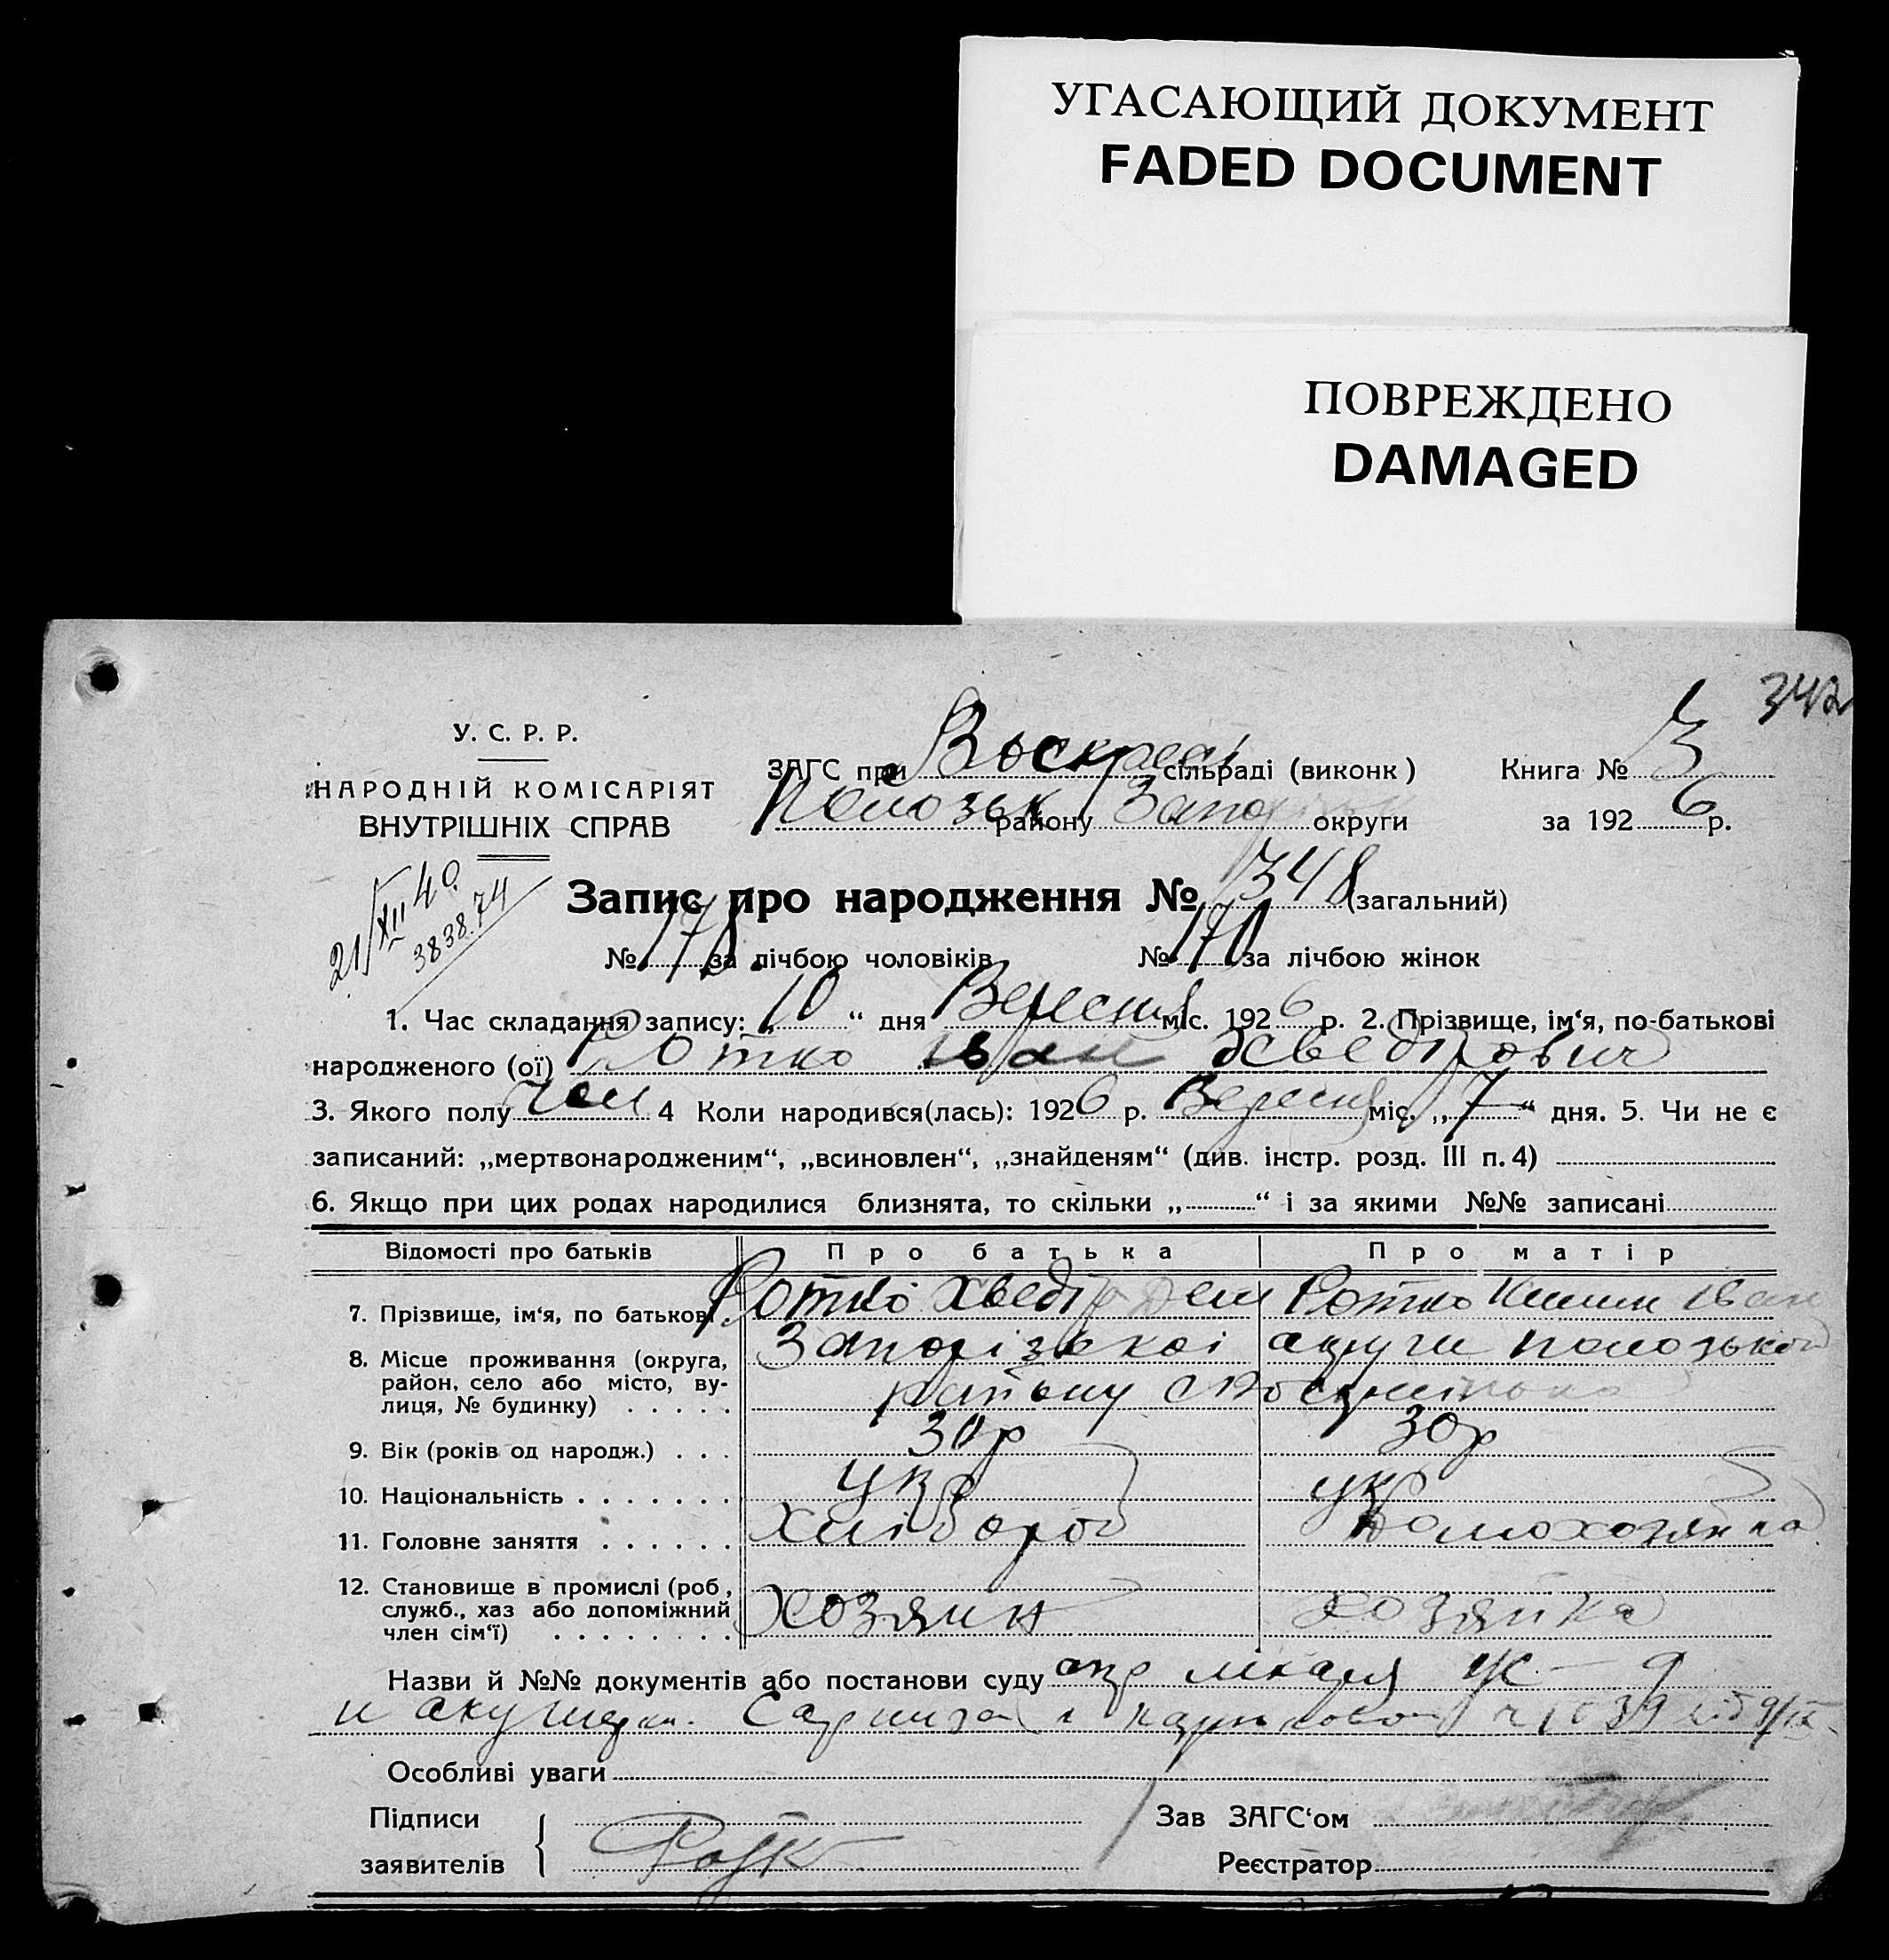 УГАСАЮЩИЙ ДОКУМЕНТ
FADED DOCUMENT
ПОВРЕЖДЕНО
DAMAGED
342
У. С. Р. Р.
НАРОДНІЙ КОМІСАРІЯТ
ВНУТРІШНІХ СПРАВ
ЗАГС при Воскрес сільраді (виконк) Книга № 3
Полозьк району Запо округи за 192 6 р.
21/XII 40
3838.74
Запис про народження № 348 (загальний)
№ 178 за лічбою чоловіків № 170 за лічбою жінок
1. Час складання запису: „ 10 “ дня Вересня міс. 192 6 р. 2. Прізвище, ім‘я, по-батькові
народженого (ої) Ротко Іван Хведірович
3. Якого полу чол 4 Коли народився(лась): 192 6 р. Вересня міс. „ 7 “ дня. 5. Чи не є
записаний: „мертвонародженим“, „всиновлен“, „знайденям“ (див. інстр. розд. III п. 4)
6. Якщо при цих родах народилися близнята, то скільки „ “ і за якими №№ записані
Відомості про батьків Про батька Про матір
7. Прізвище, ім‘я, по батькові Ротко Хведір Дем Ротко Іван
8. Місце проживання (округа, Запорізькоі округи Полозького
район, село або місто, ву- району с
лиця, № будинку)
9. Вік (років од народж.) 30р 30р
10. Національність укр укр
11. Головне заняття Хлібороб Домохозяйка
12. Становище в промислі (роб,
служб., хаз або допоміжний Хозяин хозяйка
член сім‘ї)
Назви й №№ документів або постанови суду лікаря
и акушерки. 1039 від 9/IX
Особливі уваги
Підписи Зав ЗАГС‘ом
заявителів Ротк Реєстратор